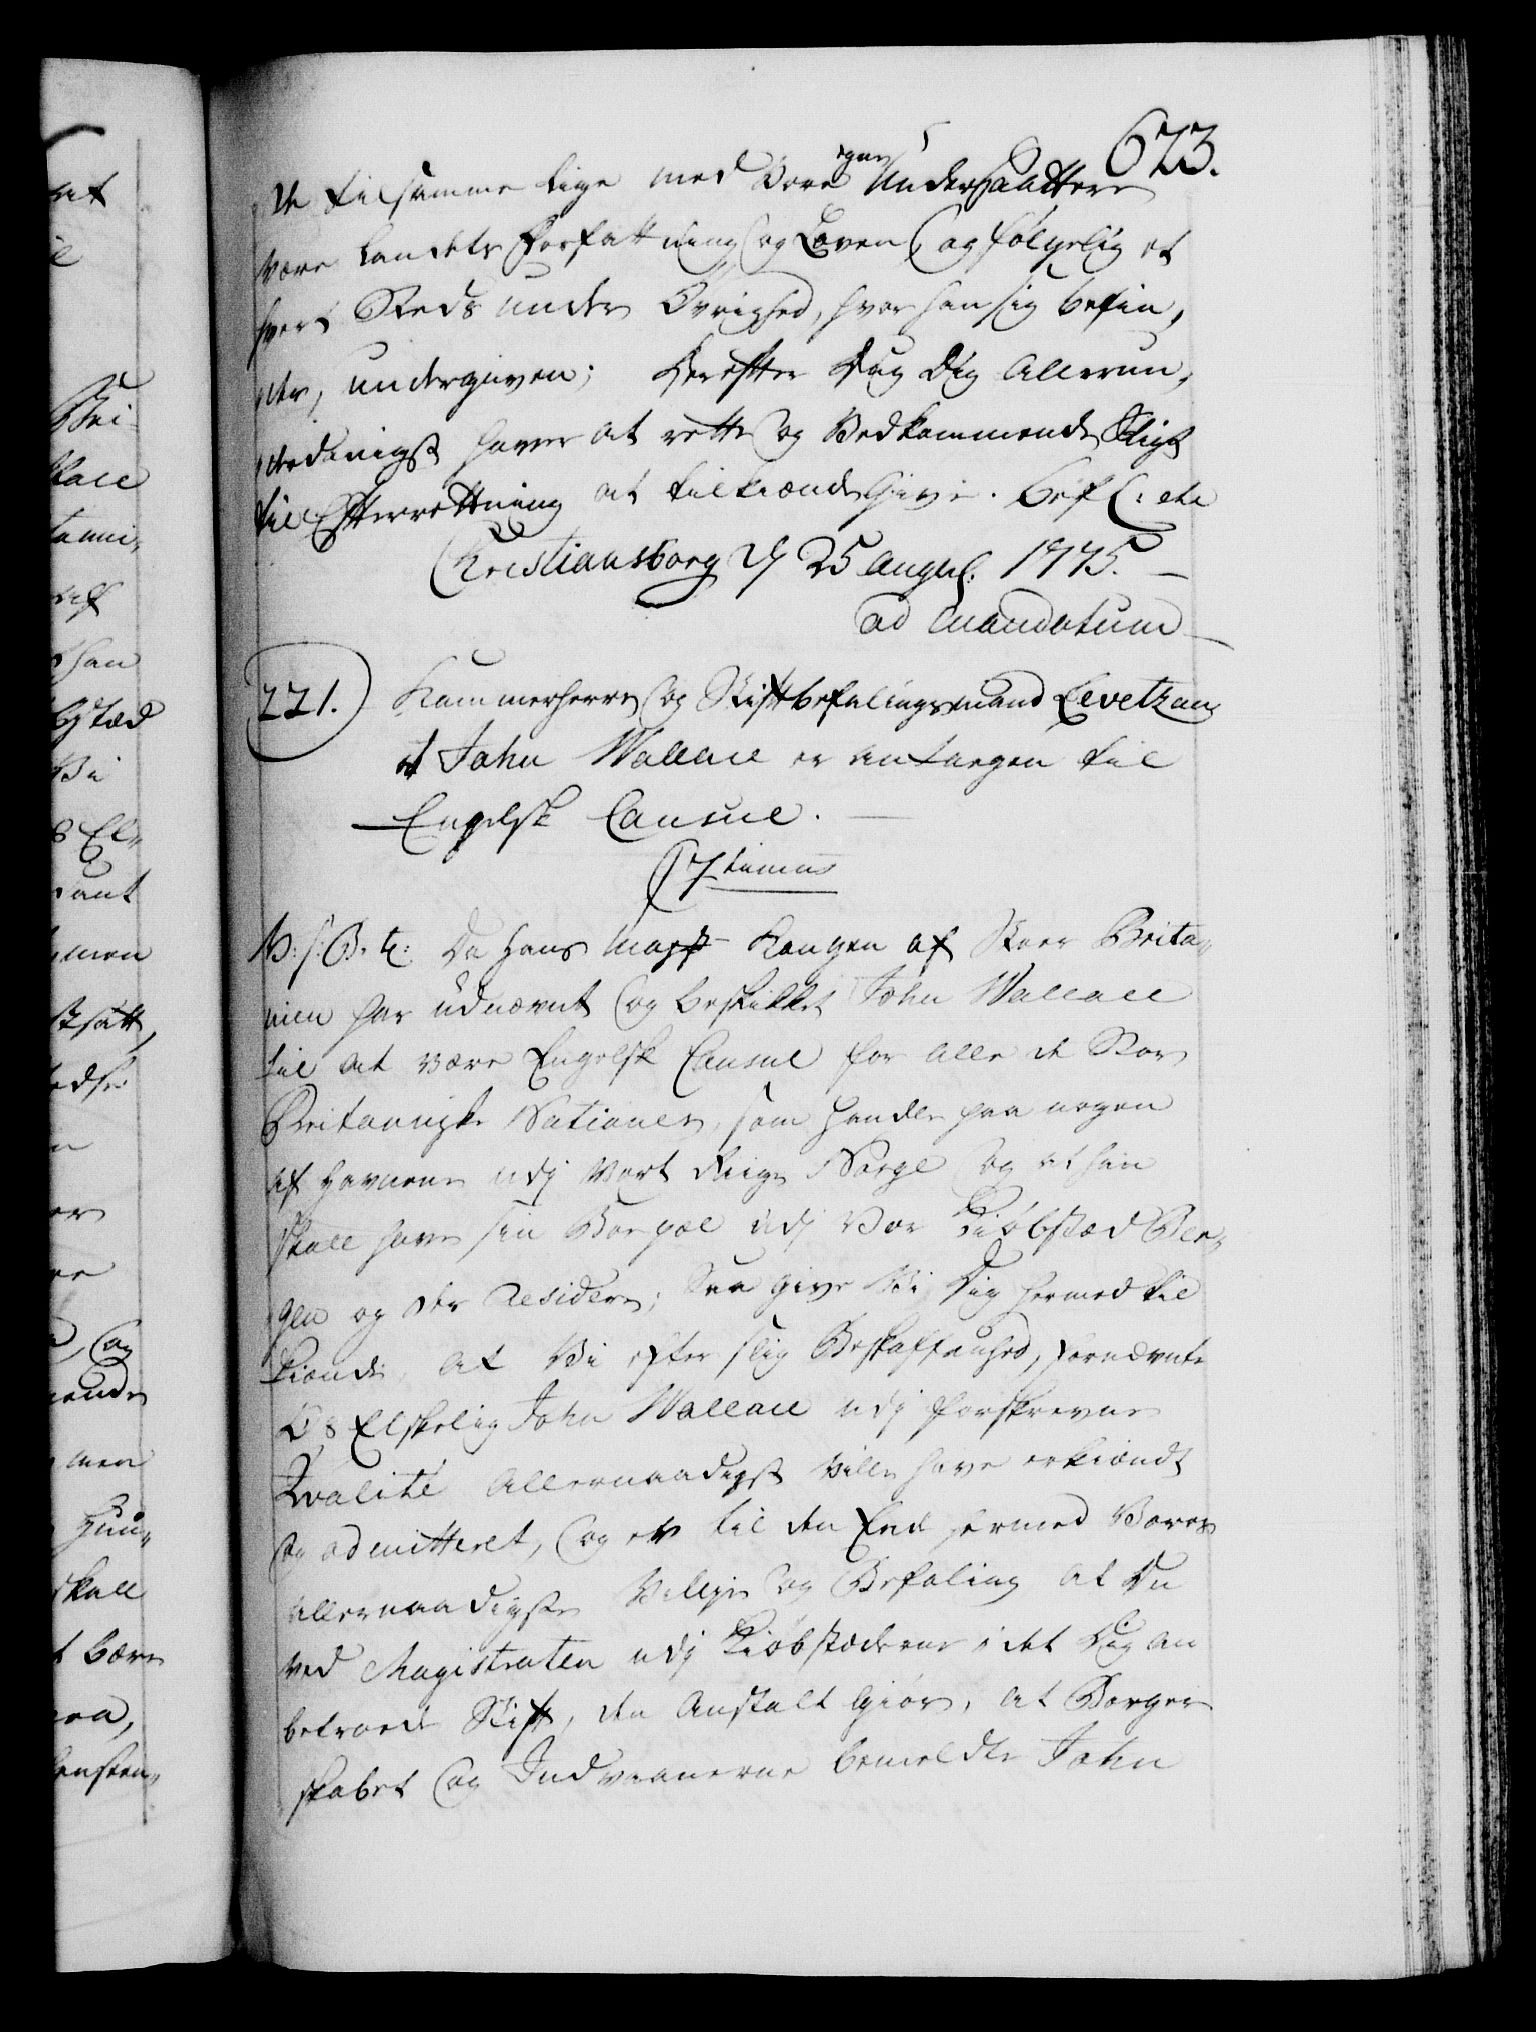 623.
de tilsamme lige med Vore egne Undersaattere
være Landets Forfattning og Loven, og følgelig et
hvert Steds under Övrighed, hvor han sig befin,
der, undergiven; Derefter Du Dig Allerun,
derdanigst haver at rette og Vedkommende Sligt
til Efterrettning at tilkiende give. Bef C: etc
Christiansborg d 25 Augusl. 1775.
ad Mandatum
221.) Kammerherre og Stiftbefalingsmand Levetzau
at John Wallace er antagen til
Engelsk Consul.
C 7timus
V: s: G. t: Da Hans Mayst Kongen af Stoor Brita-
nien har udnævnt og beskikket John Wallace
til at være Engelsk Consul for alle de Stor
Britanniske Nationer, som handle paa nogen
af Havnene udj Vort Rige Norge og at han
skall have sin Boepæl udj Vor Kiöbstæd Ber-
gen og der Residere; Saa give Vi Dig hermed til
kiende, at Vi efter slig Beskaffenhed, fornævnte
Os Elskelig John Wallace udj forskrevne
Qvalité Allernaadigst ville have erkiendt
og admitteret, og er til den Ende hermed Vores
allernaadigste Villie og Befaling at Du
ved Magistraten udj Kiöbstæderne i det Dig an
betroede Stift, den Anstalt giör, at Borger
skabet og Indvaanerne bemeldte John